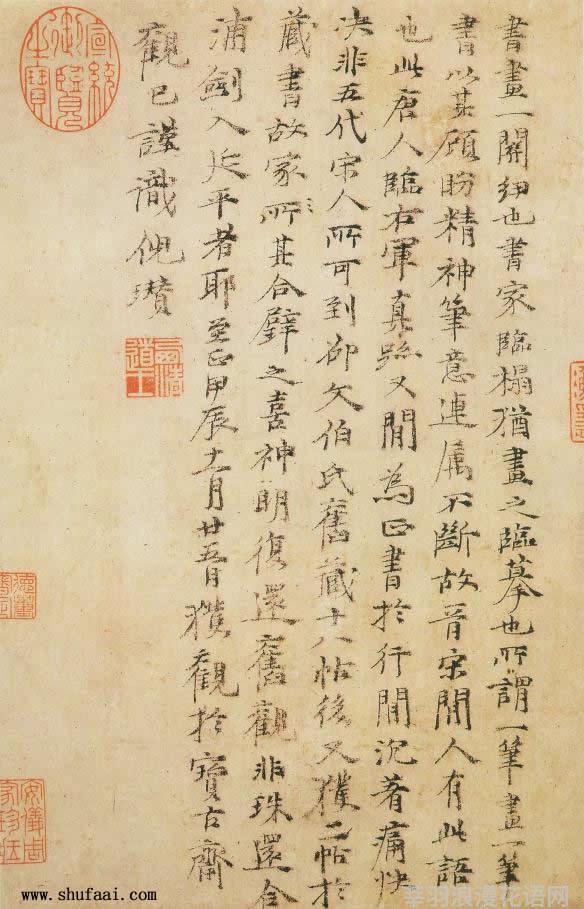 書畫一關紐也書家臨搨猶畫之臨摹也所謂一筆畫一筆
書以其顧盼精神筆意連属不斷故晋宋間人有此語
也此唐人臨右軍真跡又間為正書於行間沉着痛快
决非五代宋人所可到邵文伯氏舊藏十八帖後又獲二帖於
蔵書故家所其合璧之喜神明復還舊觀非珠還合
浦劍入延平者耶至正甲辰十一月廿五日獲觀於寶古齋
觀已謹識倪瓚
宣統御覽之寶
安儀周家珍藏
www.shufaai.com
莘羽浪漫花语网